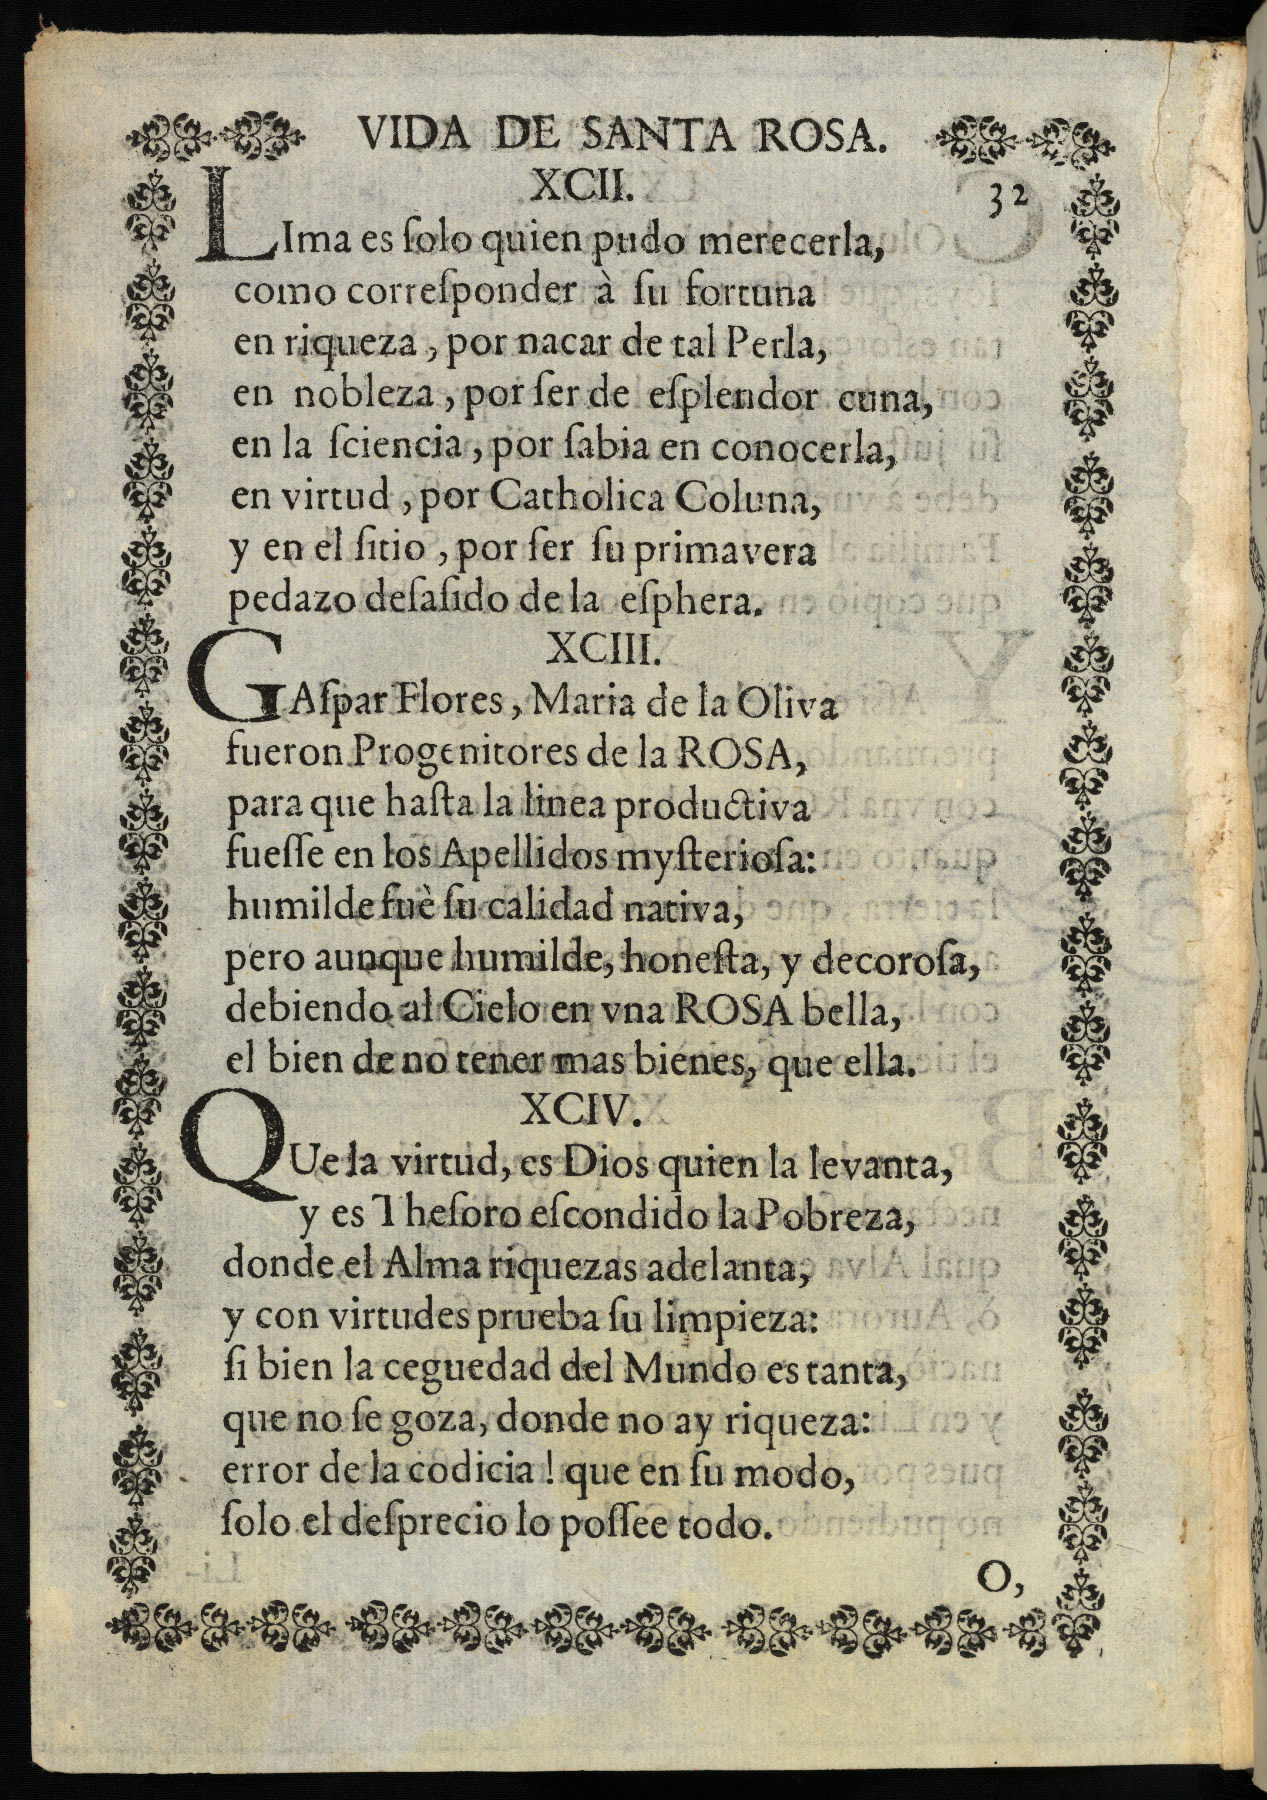 VIDA DE SANTA ROSA.
XCII.
32
LIma es ſolo quien pudo merecerla,
como correſponder à ſu fortuna
en riqueza, por nacar de tal Perla,
en nobleza, por ſer de eſplendor cuna,
en la ſciencia, por ſabia en conocerla,
en virtud, por Catholica Coluna,
y en el ſitio, por ſer ſu primavera
pedazo deſaſido de la eſphera.
XCIII.
GAſpar Flores, Maria de la Oliva
fueron Progenitores de la ROSA,
para que haſta la linea productiva
fueſſe en los Apellidos myſterioſa:
humilde fuè ſu calidad nativa,
pero aunque humilde, honeſta, y decoroſa,
debiendo al Cielo en vna ROSA bella,
el bien de no tener mas bienes, que ella.
XCIV.
QUe la virtud, es Dios quien la levanta,
y es Theſoro eſcondido la Pobreza,
donde el Alma riquezas adelanta,
y con virtudes prueba ſu limpieza:
ſi bien la ceguedad del Mundo es tanta,
que no ſe goza, donde no ay riqueza:
error de la codicia! que en ſu modo,
ſolo el deſprecio lo poſſee todo.
O,